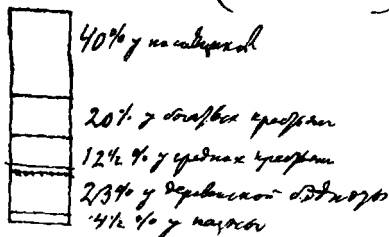 40% у помещиков
20% у богатых крестьян
12½ % у средних крестьян
23% у деревенской бедноты
4½ % у казны